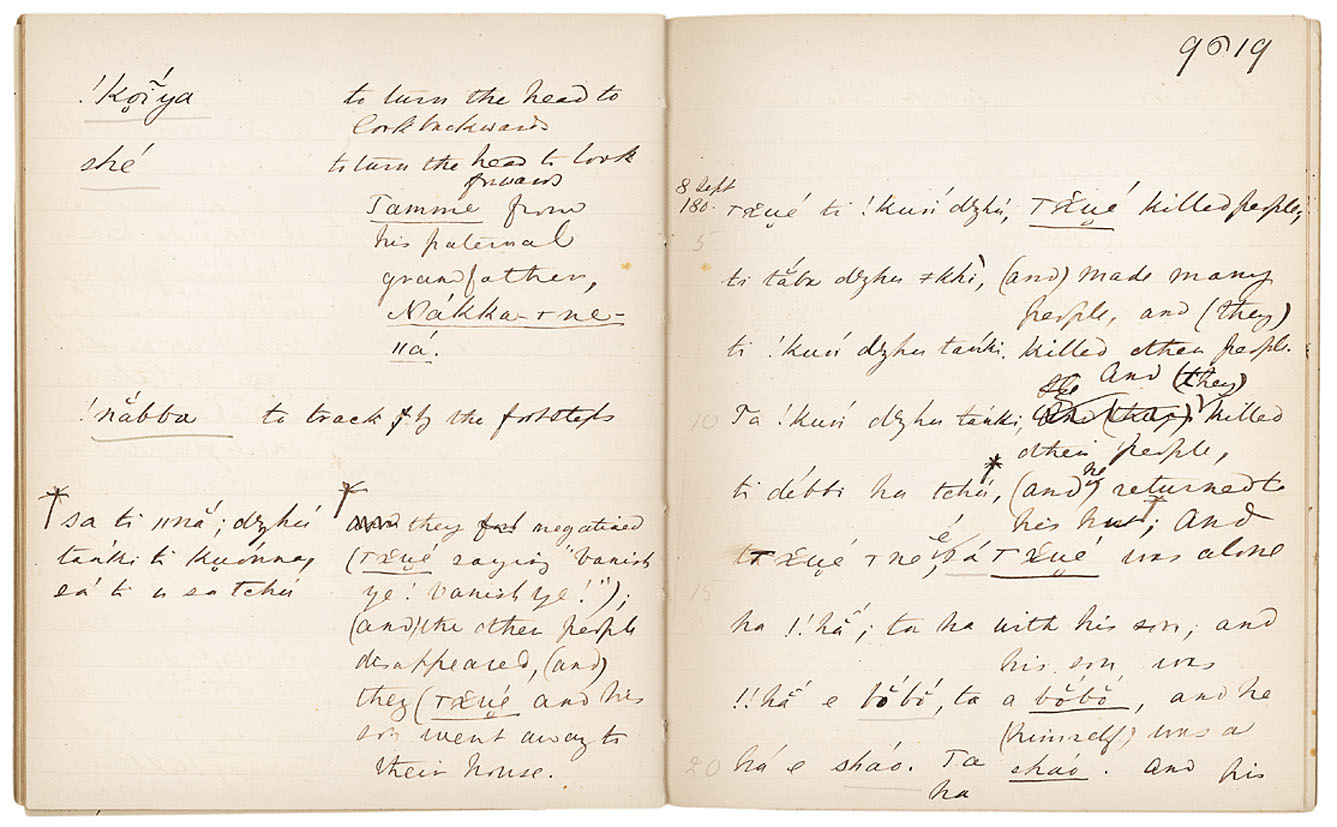 !Kọ̃í́ya to turn the head to
look backwards
shé to turn the head to look
forwards
Tamme from
his paternal
grandfather,
Nákka-ɪne-
ııá.
!nằbba to track by the footsteps
sa ti ııná; dzhú
taṅki ti kuónna,
sá ti u sa tchú
they negatived
(ɪX̱ué saying "Vanish
ye! Vanish ye!");
(and) the other people
disappeared, (and)
they (ɪX̱ué and his
son went away to
their house.
9619
8 Sept
180.
5
ɪX̱ué ti !kuṅ́ dzhú, ɪX̱ué killed people,
ti tába dzhu ǂkhì, (and) made many
people, and (they)
ti !kuṅ́ dzhu taṅ́ki. killed other people.
And (they)
10
Ta !kuṅ́ dzhu taṅ́ki, killed
other people,
ti débbi ha tchú, (and he) returned to
his hut; And
ɪX̱ué ɪnĕ, é sá ɪX̱ué was alone
15
ha !!hắ; ta ha with his son; and
his son was
!!hắ e bŏ́bŏ́, ta a bŏ́bŏ́, and he
(himself) was a
20
há e sháo. Ta sháo. And his
ha